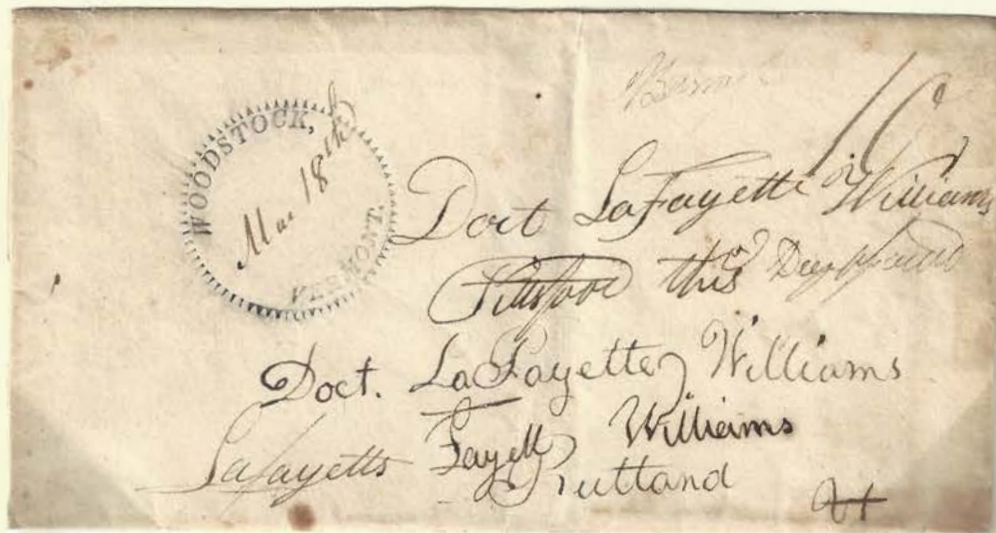 WOODSTOCK,
Mar 18th
VERMONT.
10
Doct LaFayette Williams
Pittsford this
Doct. LaFayette Williams
Lafayetts Fayett Williams
Rutland
Vt